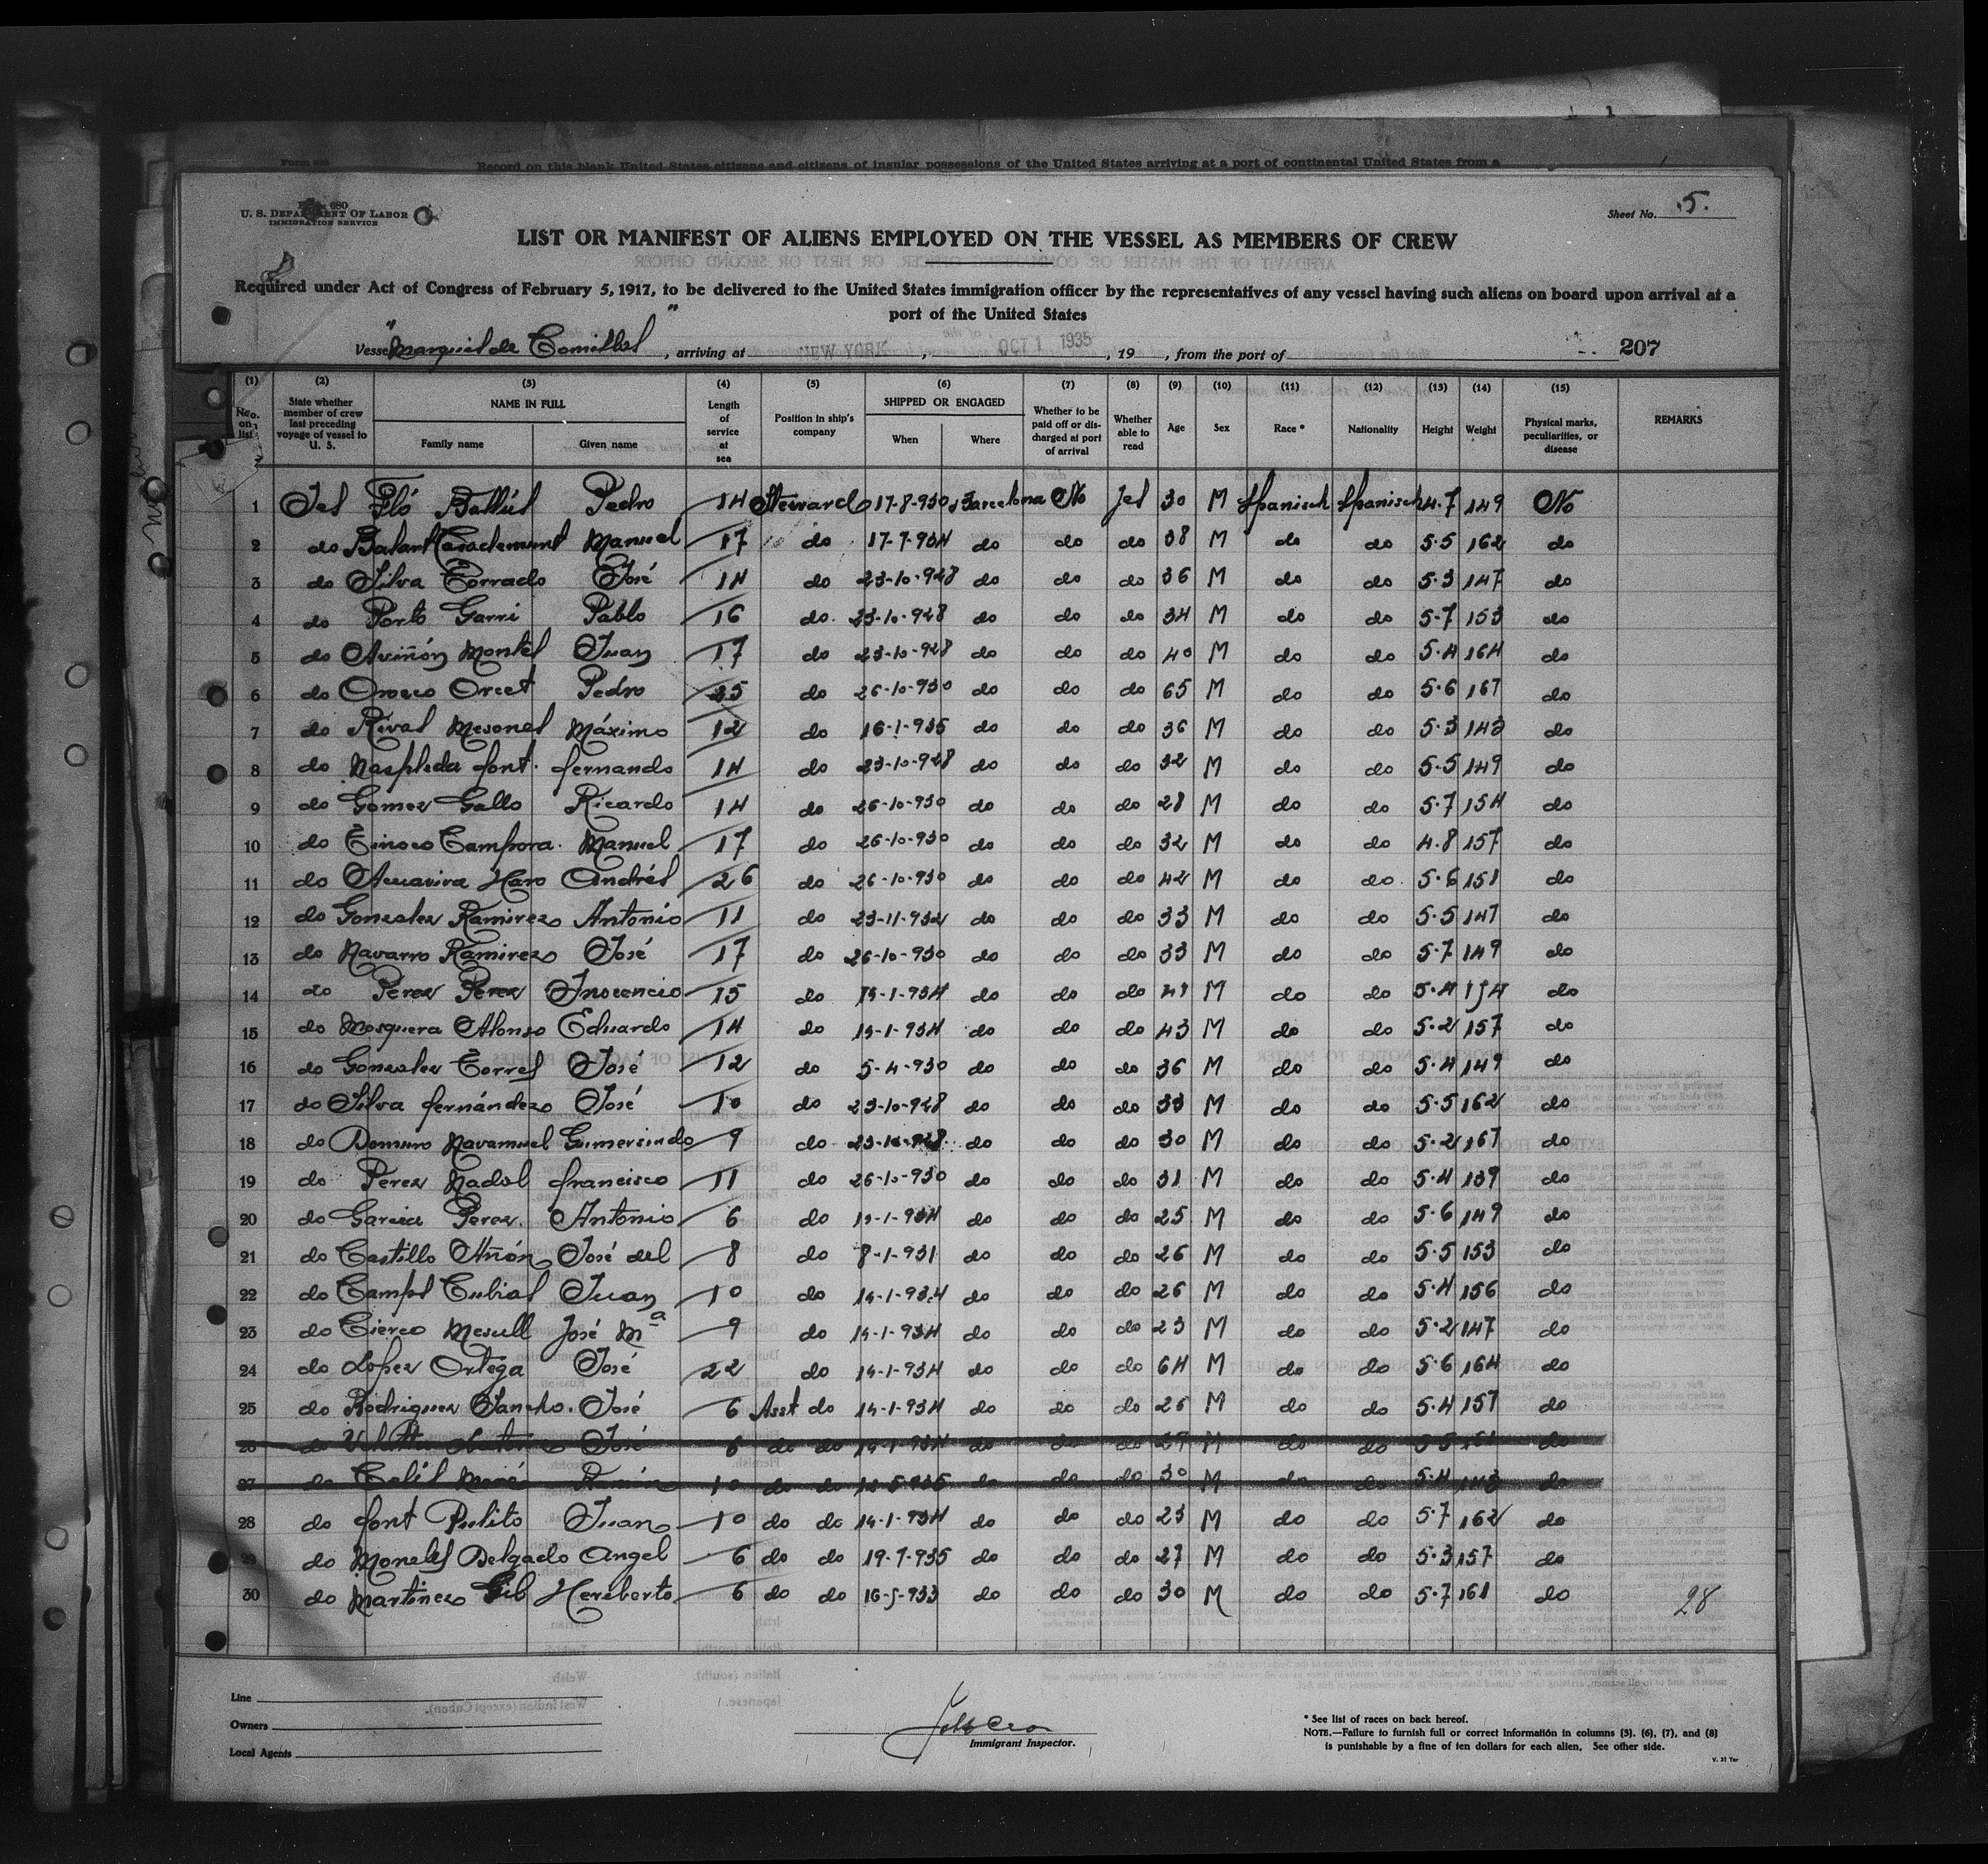 Record on this blank United States citizens and citizens of insular possessions of the United States arriving at a port of continental United States from a
680
U. S. DEPARTMENT OF LABOR
IMMIGRATION SERVICE
Sheet No. 5.
LIST OR MANIFEST OF ALIENS EMPLOYED ON THE VESSEL AS MEMBERS OF CREW
Required under Act of Congress of February 5, 1917, to be delivered to the United States immigration officer by the representatives of any vessel having such aliens on board upon arrival at a
port of the United States
Vessel "Marqués de Comillas", arriving at NEW YORK, OCT 1 1935, 19, from the port of 207
(1) (2) (3) (4) (5) (6) (7) (8) (9) (10) (11) (12) (13) (14) (15)
No. on list State whether member of crew last preceding voyage of vessel to U. S. NAME IN FULL Family name Given name Length of service at sea Position in ship's company SHIPPED OR ENGAGED When Where Whether to be paid off or discharged at port of arrival Whether able to read Age Sex Race * Nationality Height Weight Physical marks, peculiarities, or disease REMARKS
1 Yes Fló Ballús Pedro 14 Steward 17-8-930 Barcelona No Yes 30 M Spanisch Spanisch 4.7 149 No
2 do Manuel 17 do 17-7-934 do do do 38 M do do 5.5 162 do
3 do Silva Torrado José 14 do 23-10-928 do do do 36 M do do 5.3 147 do
4 do Porto Garri Pablo 16 do. 23-10-928 do do do 34 M do do 5.7 153 do
5 do Aviñón Montel Juan 17 do 23-10-928 do do do 40 M do do 5.4 164 do
6 do Orozco Orcet Pedro 35 do 26-10-930 do do do 65 M do do 5.6 167 do
7 do Rivas Mesones Máximo 12 do 16-1-935 do do do 36 M do do 5.3 143 do
8 do Naspleda font. fernando 14 do 23-10-928 do do do 32 M do do 5.5 149 do
9 do Gomez Gallo Ricardo 14 do 26-10-930 do do do 28 M do do 5.7 154 do
10 do Tinoco Campora. Manuel 17 do 26-10-930 do do do 32 M do do 4.8 157 do
11 do Acuaviva Haro Andrés 26 do 26-10-930 do do do 42 M do do. 5.6 151 do
12 do Gonzalez Ramirez Antonio 11 do 23-11-932 do do do 33 M do do 5.5 147 do
13 do Navarro Ramirez José 17 do 26-10-930 do do do 33 M do do 5.7 149 do
14 do Perez Perez Inocencio 15 do 14-1-934 do do do 41 M do do 5.4 154 do
15 do Mosquera Alonso Eduardo 14 do 14-1-934 do do do 43 M do do 5.2 157 do
16 do Gonzalez Torres José 12 do 5-4-930 do do do 36 M do do 5.4 149 do
17 do Silva fernández José 10 do 23-10-928 do do do 33 M do do 5.5 162 do
18 do Romuro Navamuel Gumersindo 9 do 23-10-928. do do do 30 M do do 5.2 167 do
19 do Perez Nadal francisco 11 do 26-10-930 do do do 31 M do do 5.4 139 do
20 do Garcia Perez. Antonio 6 do 14-1-934 do do do 25 M do do 5.6 149 do
21 do Castillo Añón José del 8 do 8-1-931 do do do 26 M do do 5.5 153 do
22 do Camps Cubias Juan 10 do 14-1-934 do do do 26 M do do 5.4 156 do
23 do Cierco Mesull José Mª 9 do 14-1-934 do do do 23 M do do 5.2 147 do
24 do Lopez Ortega José 22 do 14-1-934 do do do 64 M do do 5.6 164 do
25 do Rodriguez Sancho. José 6 Asst do 14-1-934 do do do 26 M do do 5.4 157 do
26 do José 6 do do 14-1-934 do do do 29 M do do 5.5 do
27 do Ramón 10 do do do do do 30 M do do 5.4 do
28 do font Pulito Juan 10 do do 14-1-934 do do do 23 M do do 5.7 162 do
29 do Delgado Angel 6 do do 19-7-935 do do do 27 M do do 5.3 157 do
30 do Martinez Gil Heriberto 6 do do 16-5-933 do do do 30 M do do 5.7 161 do 28
Line
Owners
Local Agents
Immigrant Inspector.
* See list of races on back hereof.
NOTE.—Failure to furnish full or correct information in columns (3), (6), (7), and (8)
is punishable by a fine of ten dollars for each alien. See other side.